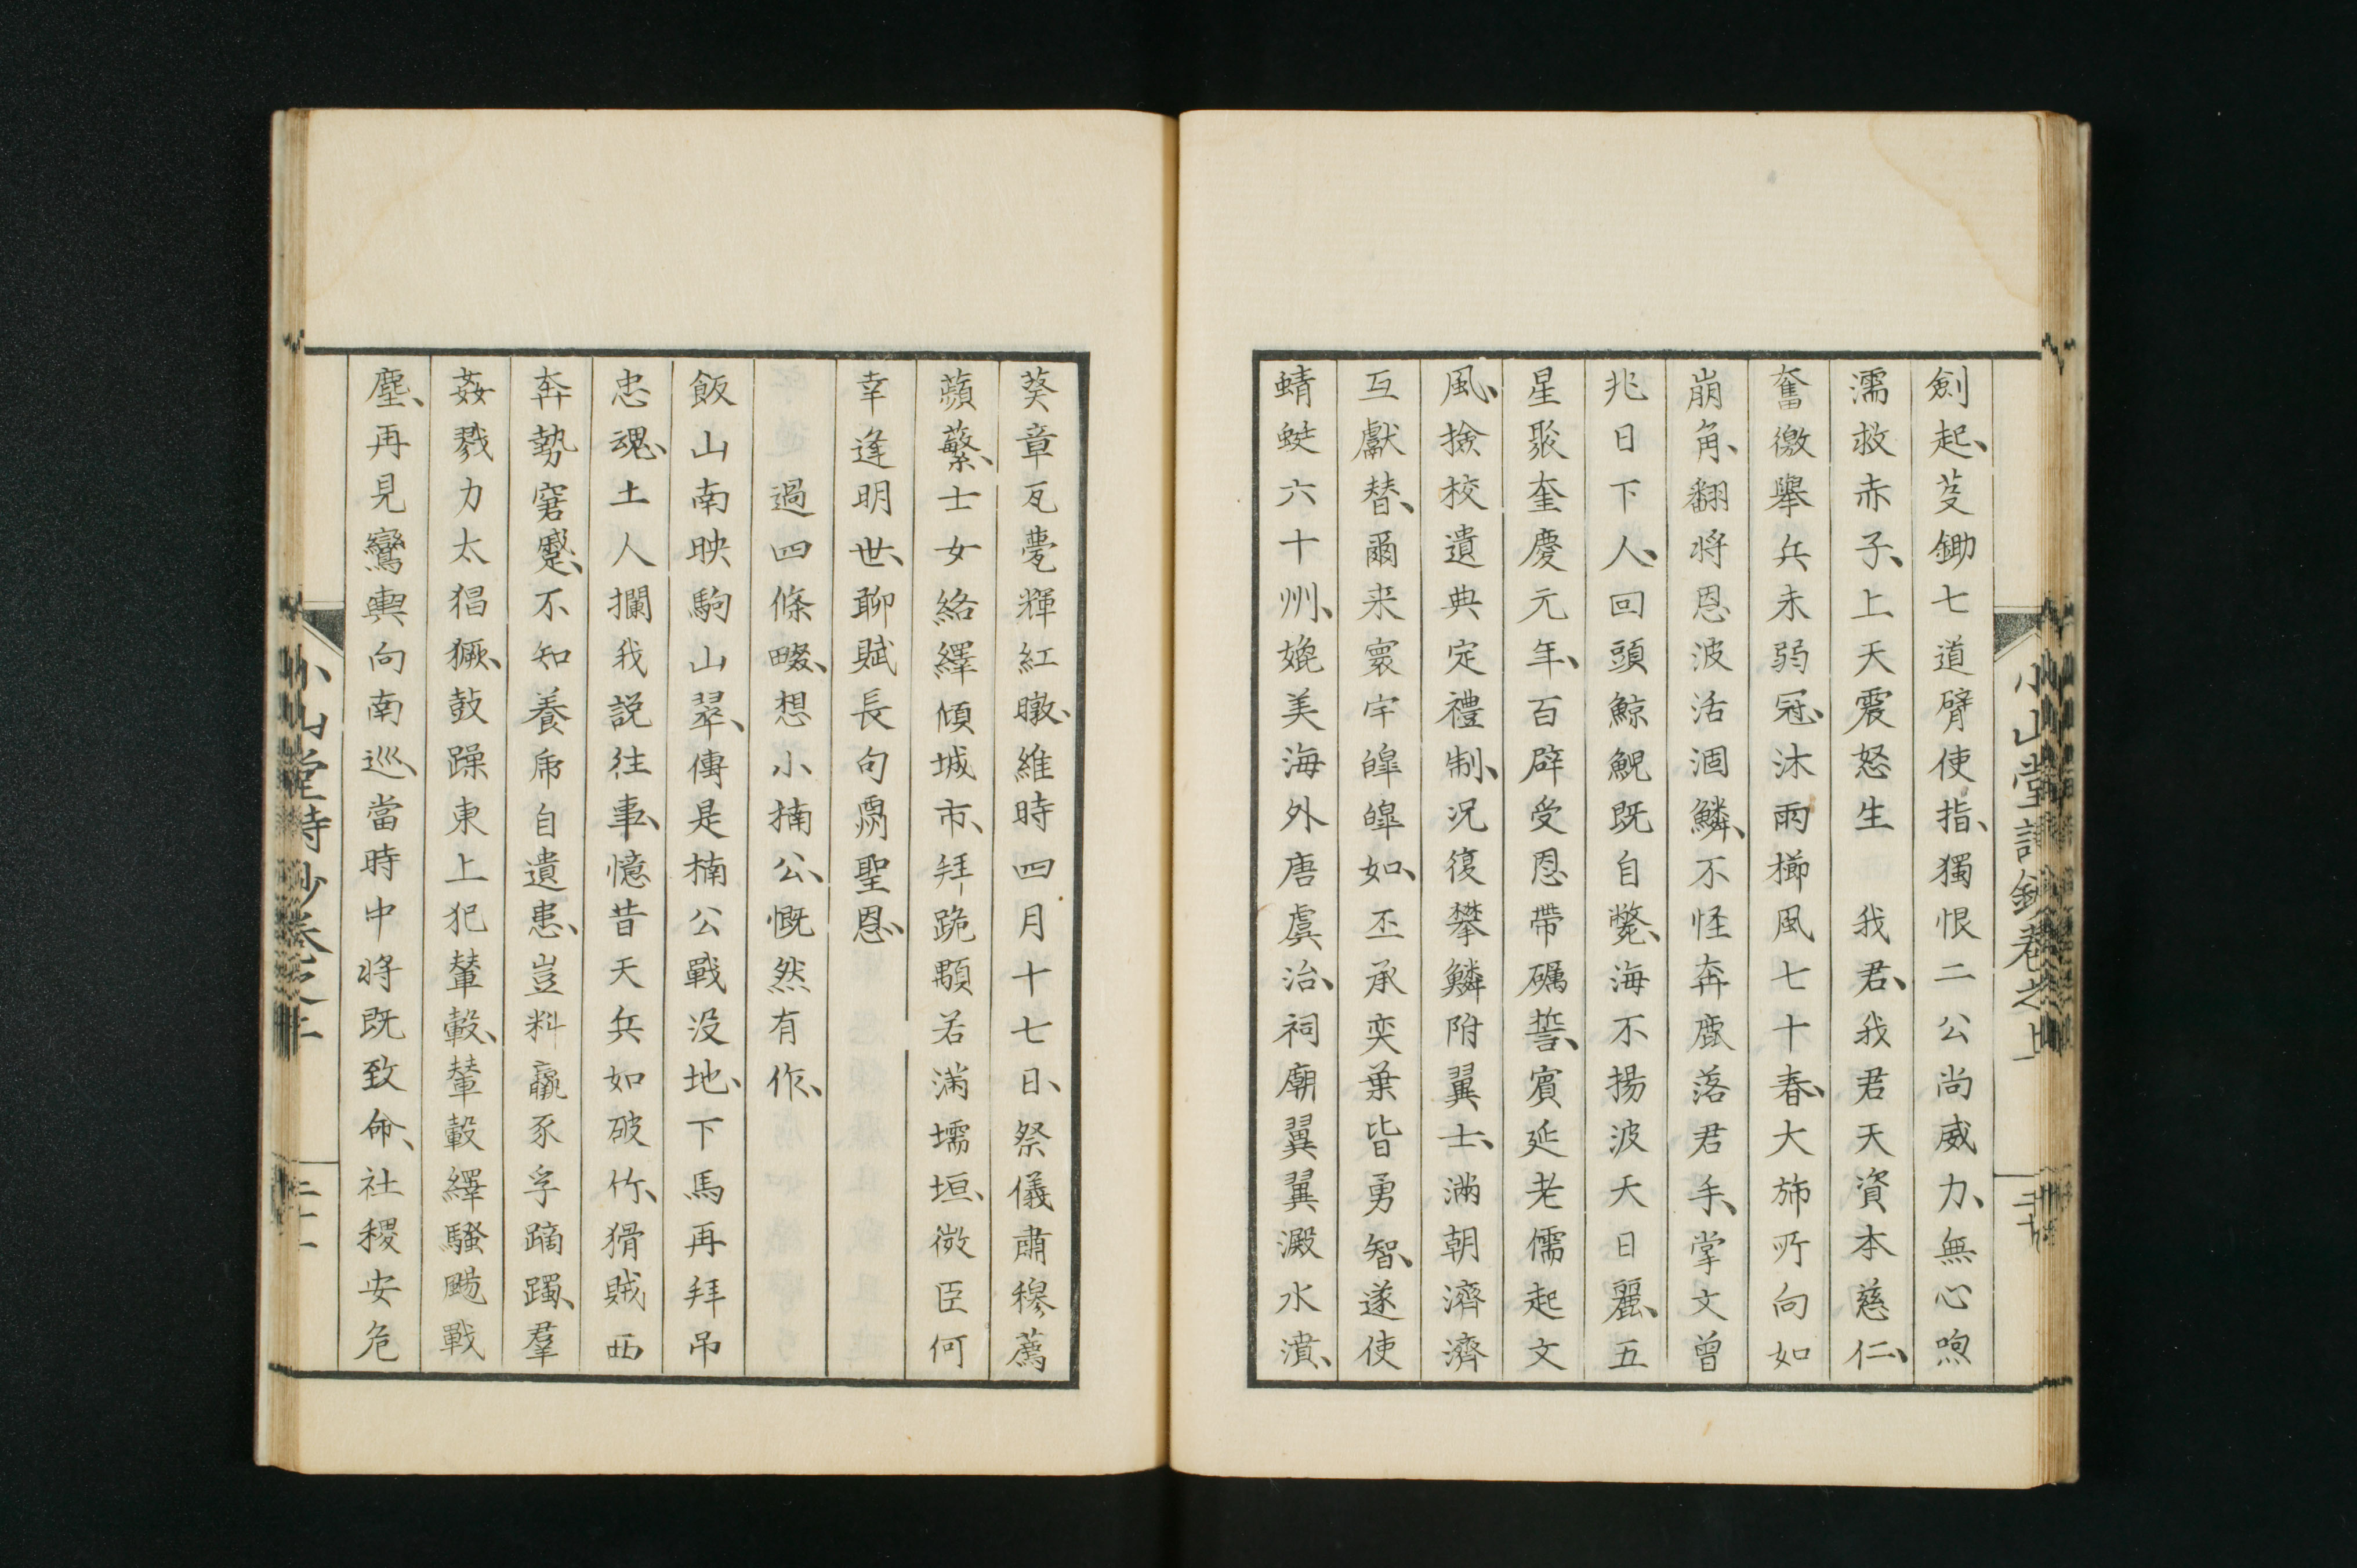 小山堂詩鈔卷之上
劍起、芟鋤七道臂使指、獨恨二公尚威力、無心喣
濡救赤子、上天震怒生　我君、我君天資本慈仁、
奮激舉兵未弱冠、沐雨櫛風七十春、大斾所向如
崩角、翻將恩波活涸鱗、不怪奔鹿落君手、掌文曾
兆日下人、回頭鯨鯢既自斃、海不揚波天日麗、五
星聚奎慶元年、百辟受恩帶礪誓、賓延老儒起文
風、撿校遺典定禮制、況復攀鱗附翼士、滿朝濟濟
互獻替、爾來寰宇皥皥如、丕承奕葉皆勇智、遂使
蜻蜓六十州、媲美海外唐虞治、祠廟翼翼澱水濆、
葵章瓦甍輝紅暾、維時四月十七日、祭儀肅穆薦
蘋蘩、士女絡繹傾城市、拜跪顒若滿壖垣、微臣何
幸逢明世、聊賦長句
聖恩、
過四條畷、想小楠公、慨然有作、
飯山南映駒山翠、傳是楠公戰没地、下馬再拜吊
忠魂、土人攔我説往事、憶昔天兵如破竹、猾賊西
奔勢窘蹙、不知養乕自遺患、豈料羸豕孚蹢躅、羣
姦戮力太猖獗、鼓躁東上犯輦轂、輦轂繹騷颺戰
塵、再見鸞輿向南巡、當時中将既致命、社稷安危
小山堂詩鈔卷之上